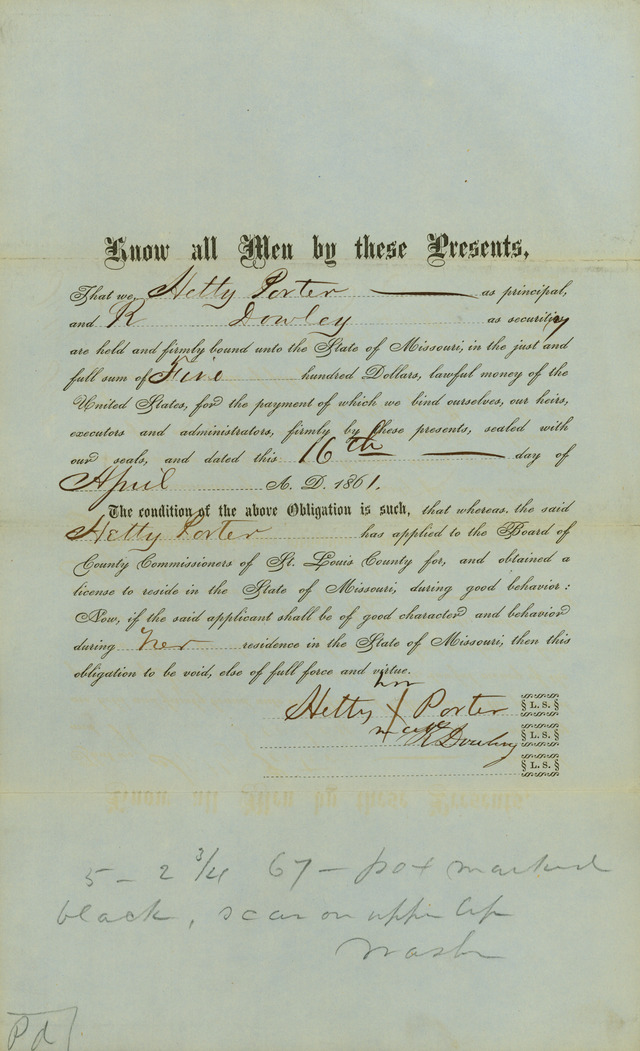 Know all Men by these Presents,
That we, Hetty Porter as principal,
and R Dowley as security
are held and firmly bound unto the State of Missouri, in the just and
full sum of Five hundred Dollars, lawful money of the
United States, for the payment of which we bind ourselves, our heirs,
executors and administrators, firmly by these presents, sealed with
our seals, and dated this 16th day of
April A. D. 1861.
The condition of the above Obligation is such, that whereas, the said
Hetty Porter has applied to the Board of
County Commissioners of St. Louis County for, and obtained a
license to reside in the State of Missouri, during good behavior:
Now, if the said applicant shall be of good character and behavior
during her residence in the State of Missouri, then this
obligation to be void, else of full force and virtue.
her
Hetty X Porter L. S.
mark
R Dowley L. S.
L. S.
5 - 2 3/4 67 - pox marked
black, scar on upper lip
Wash
Pd